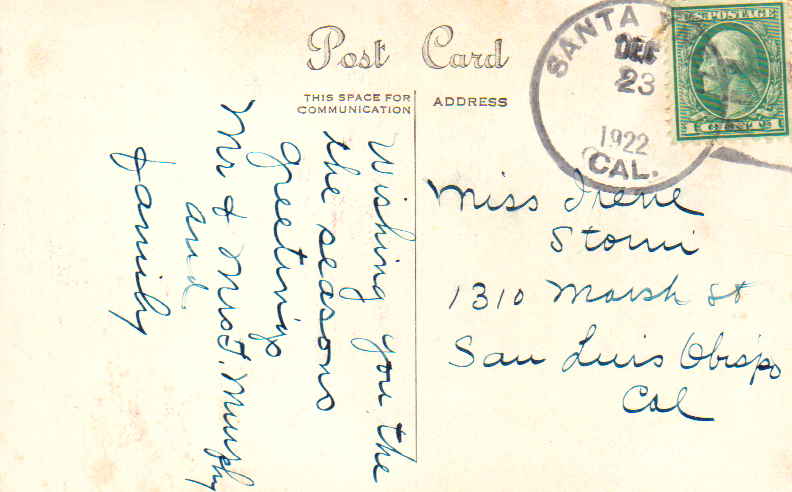 Post Card
THIS SPACE FOR
COMMUNICATION
ADDRESS
SANTA
DEC
23
1922
CAL.
U.S. POSTAGE
Wishing you the
the seasons
greetings
Mr & Mrs J. Murphy
and
family
Miss Irene
Storni
1310 Marsh St
San Luis Obispo
Cal